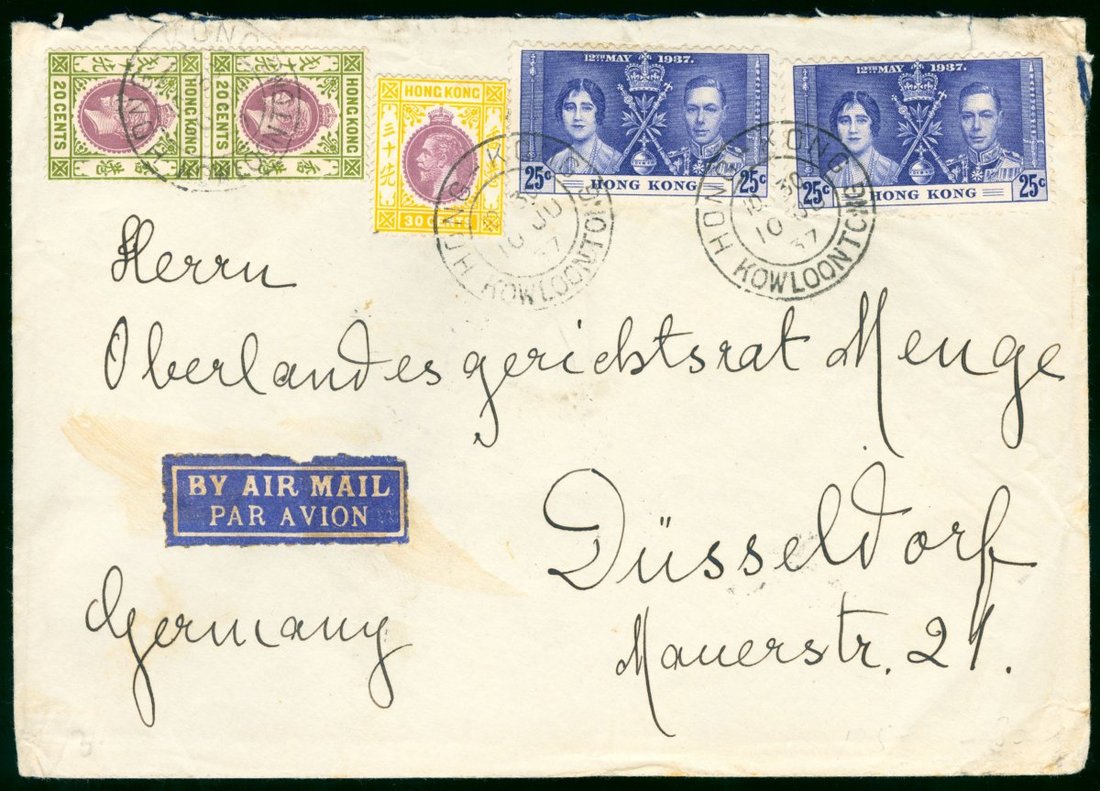 20 CENTS
HONG KONG
20 CENTS
HONG KONG
HONG KONG
三十先
30 CENTS
12TH MAY 1937.
25c HONG KONG 25c
12TH MAY 1937.
25c HONG KONG 25c
KOWLOON TONG
HONG KONG
10 JU
37
KOWLOON TONG
HONG KONG
30
10
37
Herrn
Oberlandesgerichtsrat Menge
BY AIR MAIL
PAR AVION
Düsseldorf
Germany
Mauerstr. 21.